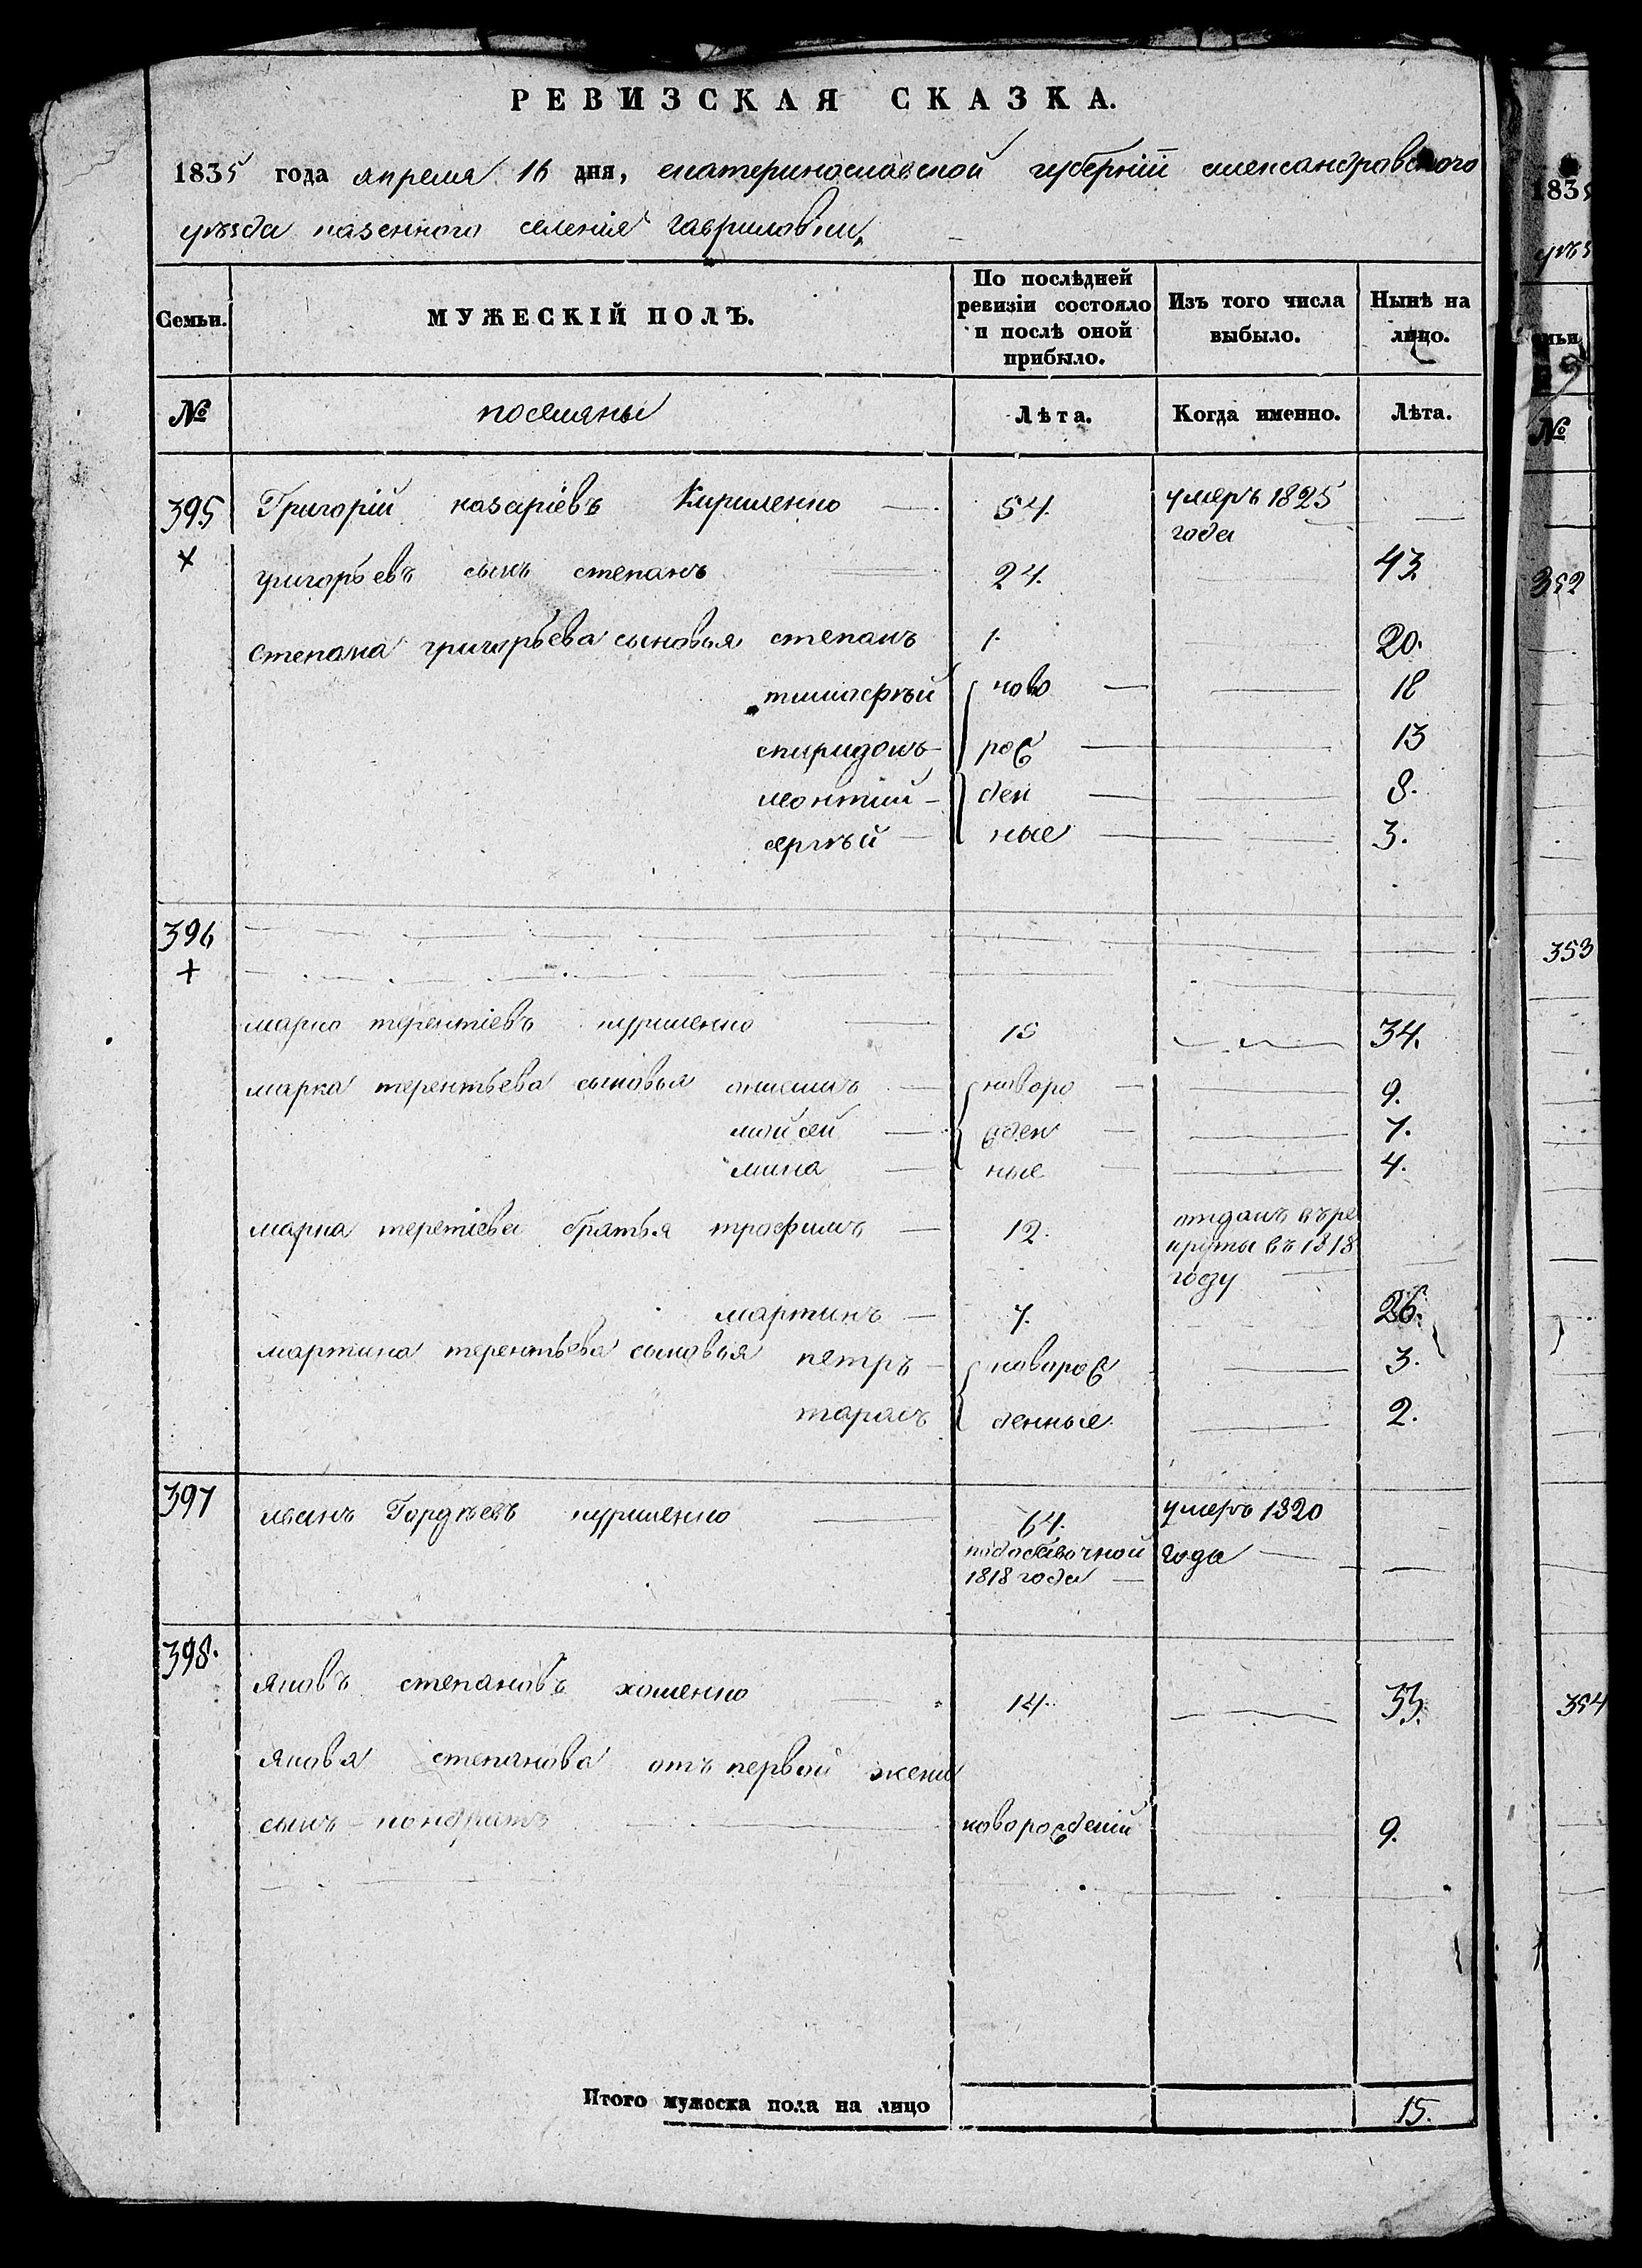 РЕВИЗСКАЯ СКАЗКА.
1835 года апреля 16 дня, екатеринославской губерніи александровского
уѣзда казенного селенія гавриловки.
Семьи. МУЖЕСКІЙ ПОЛЪ. По послѣдней ревизіи состояло и послѣ оной прибыло. Изъ того числа выбыло. Нынѣ на лицо.
№ поселяны Лѣта. Когда именно. Лѣта.
395 Григорій назаріевъ Кириленко 54. умеръ 1825 года
григорьевъ сынъ степанъ 24. 43.
степана григорьева сыновья степанъ 1. 20.
тимофѣй ново 18
спиридонъ рож 13
леонтий ден 8.
сергѣй ные 3.
396
марко терентіевъ кириленко 15 34.
марка терентьева сыновья онисимъ новоро 9.
мойсей жден 7.
мина ные 4.
марка теретіева братья трофимъ 12. отданъ въ ре
круты въ 1818
году
мартинъ 7. 26.
мартина терентьева сыновья петръ новорож 3.
тарасъ денные 2.
397 иванъ Гордѣевъ кириленко 64. умеръ 1820
года
1818 года
398. яковъ степановъ хоменко 14. 33.
якова степанова отъ первой жены
сынъ кондратъ новорожденій 9.
Итого мужеска пола на лицо 15.
1835
уѣз
№
352
353
354